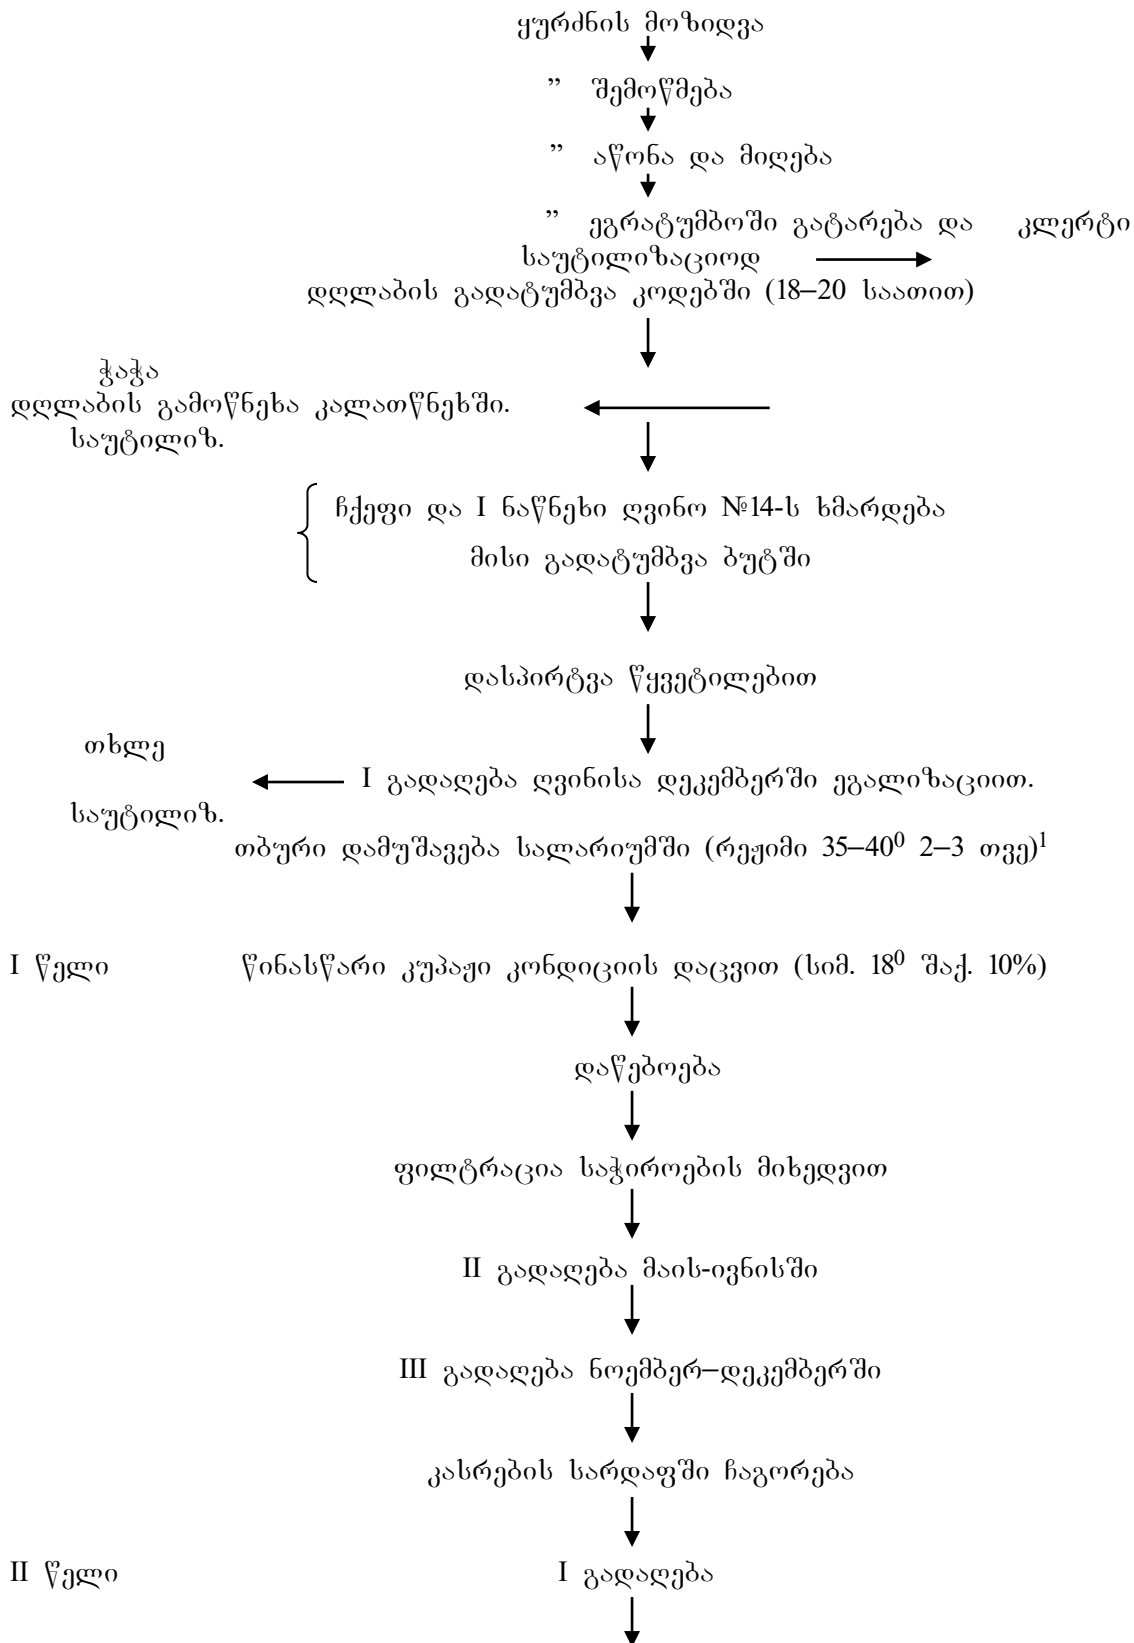 ყურძნის მოზიდვა
” შემოწმება
” აწონა და მიღება
” ეგრატუმბოში გატარება და კლერტი
საუტილიზაციოდ
დღლაბის გადატუმბვა კოდებში (18–20 საათით)
ჭაჭა
დღლაბის გამოწნეხა კალათწნეხში.
საუტილიზ.
ჩქეფი და I ნაწნეხი ღვინო №14-ს ხმარდება
მისი გადატუმბვა ბუტში
დასპირტვა წყვეტილებით
თხლე
I გადაღება ღვინისა დეკემბერში ეგალიზაციით.
საუტილიზ.
თბური დამუშავება სალარიუმში (რეჟიმი 35–40⁰ 2–3 თვე)¹
I წელი წინასწარი კუპაჟი კონდიციის დაცვით (სიმ. 18⁰ შაქ. 10%)
დაწებოება
ფილტრაცია საჭიროების მიხედვით
II გადაღება მაის-ივნისში
III გადაღება ნოემბერ–დეკემბერში
კასრების სარდაფში ჩაგორება
II წელი I გადაღება